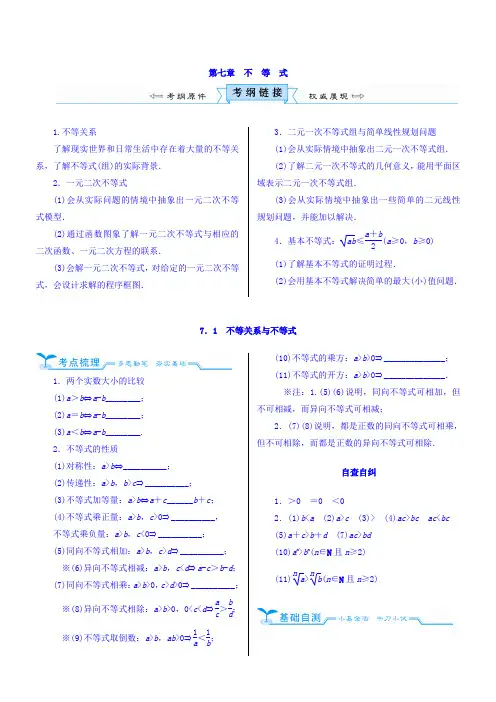 第七章 不 等 式
考纲原件 考纲链接 权威展现
1.不等关系
了解现实世界和日常生活中存在着大量的不等关
系，了解不等式(组)的实际背景．
2．一元二次不等式
(1)会从实际问题的情境中抽象出一元二次不等
式模型．
(2)通过函数图象了解一元二次不等式与相应的
二次函数、一元二次方程的联系．
(3)会解一元二次不等式，对给定的一元二次不等
式，会设计求解的程序框图．
3．二元一次不等式组与简单线性规划问题
(1)会从实际情境中抽象出二元一次不等式组．
(2)了解二元一次不等式的几何意义，能用平面区
域表示二元一次不等式组．
(3)会从实际情境中抽象出一些简单的二元线性
规划问题，并能加以解决．
4．基本不等式：√ab≤(a＋b)/2(a≥0，b≥0)
(1)了解基本不等式的证明过程．
(2)会用基本不等式解决简单的最大(小)值问题．
7．1 不等关系与不等式
考点梳理
1．两个实数大小的比较
(1)a＞b⇔a-b________；
(2)a＝b⇔a-b________；
(3)a＜b⇔a-b________．
2．不等式的性质
(1)对称性：a>b⇔__________；
(2)传递性：a>b，b>c⇒__________；
(3)不等式加等量：a>b⇔a＋c______b＋c；
(4)不等式乘正量：a>b，c>0⇒__________，
不等式乘负量：a>b，c<0⇒__________；
(5)同向不等式相加：a>b，c>d⇒__________；
※(6)异向不等式相减：a>b，c<d⇒a-c>b-d；
(7)同向不等式相乘：a>b>0，c>d>0⇒__________；
※(8)异向不等式相除：a>b>0，0<c<d⇒a/c＞b/d；
※(9)不等式取倒数：a>b，ab>0⇒1/a＜1/b；
(10)不等式的乘方：a>b>0⇒______________；
(11)不等式的开方：a>b>0⇒______________．
※注：1.(5)(6)说明，同向不等式可相加，但
不可相减，而异向不等式可相减；
2．(7)(8)说明，都是正数的同向不等式可相乘，
但不可相除，而都是正数的异向不等式可相除．
自查自纠
1．>0 ＝0 <0
2．(1)b<a (2)a>c (3)> (4)ac>bc ac<bc
(5)a＋c>b＋d (7)ac>bd
(10)aⁿ>bⁿ(n∈N且n≥2)
(11)ⁿ√a>ⁿ√b(n∈N且n≥2)
基础自测